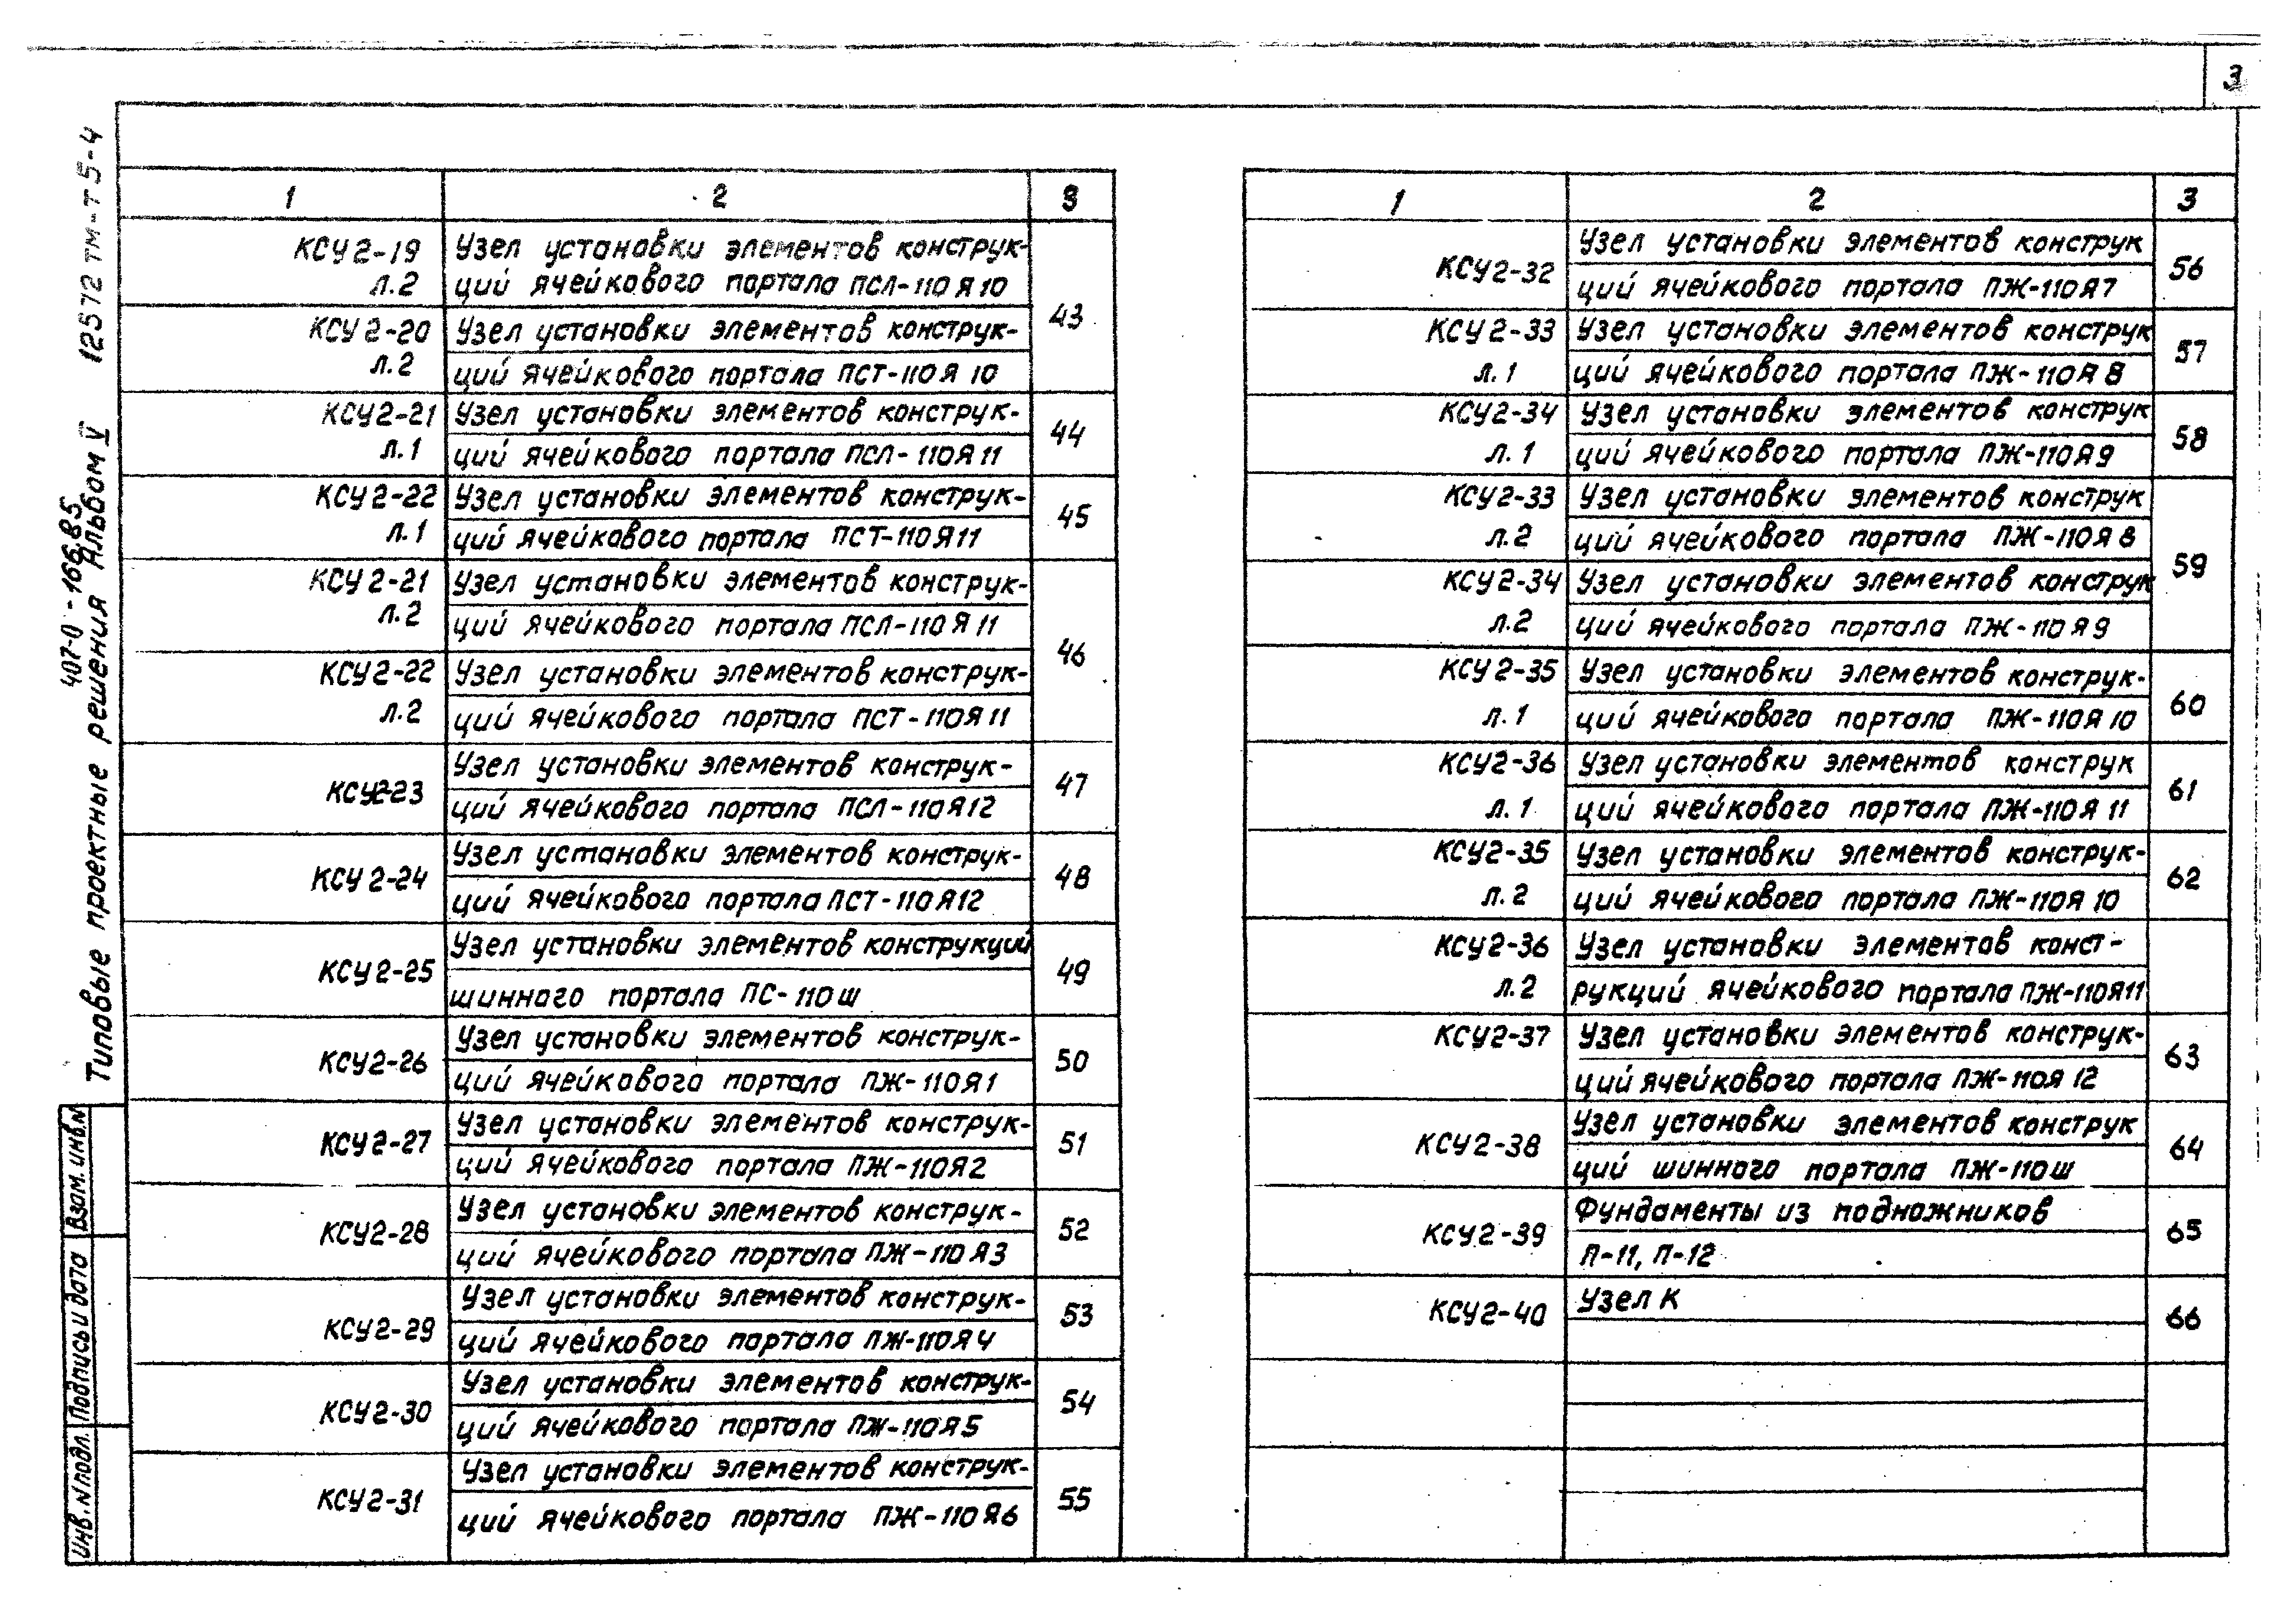 3
407-0-166.85
Типовые проектные решения Альбом V 12572 тм-т5-4
Взам. инв.N
Подпись и дата
Инв. N подл.
1 2 3
КСУ2-19 Узел установки элементов конструк-
л.2 ций ячейкового портала ПСЛ-110Я10
43
КСУ2-20 Узел установки элементов конструк-
л.2 ций ячейкового портала ПСТ-110Я10
КСУ2-21 Узел установки элементов конструк-
44
л.1 ций ячейкового портала ПСЛ-110Я11
КСУ2-22 Узел установки элементов конструк-
45
л.1 ций ячейкового портала ПСТ-110Я11
КСУ2-21 Узел установки элементов конструк-
л.2 ций ячейкового портала ПСЛ-110Я11
46
КСУ2-22 Узел установки элементов конструк-
л.2 ций ячейкового портала ПСТ-110Я11
Узел установки элементов конструк-
КСУ2-23 47
ций ячейкового портала ПСЛ-110Я12
Узел установки элементов конструк-
КСУ2-24 48
ций ячейкового портала ПСТ-110Я12
Узел установки элементов конструкций
КСУ2-25 49
шинного портала ПС-110Ш
Узел установки элементов конструк-
КСУ2-26 50
ций ячейкового портала ПЖ-110Я1
Узел установки элементов конструк-
КСУ2-27 51
ций ячейкового портала ПЖ-110Я2
Узел установки элементов конструк-
КСУ2-28 52
ций ячейкового портала ПЖ-110Я3
Узел установки элементов конструк-
КСУ2-29 53
ций ячейкового портала ПЖ-110Я4
Узел установки элементов конструк-
КСУ2-30 54
ций ячейкового портала ПЖ-110Я5
Узел установки элементов конструк-
КСУ2-31 55
ций ячейкового портала ПЖ-110Я6
1 2 3
Узел установки элементов конструк
КСУ2-32 56
ций ячейкового портала ПЖ-110Я7
КСУ2-33 Узел установки элементов конструк
57
л.1 ций ячейкового портала ПЖ-110Я8
КСУ2-34 Узел установки элементов конструк
58
л.1 ций ячейкового портала ПЖ-110Я9
КСУ2-33 Узел установки элементов конструк
л.2 ций ячейкового портала ПЖ-110Я8
59
КСУ2-34 Узел установки элементов конструк
л.2 ций ячейкового портала ПЖ-110Я9
КСУ2-35 Узел установки элементов конструк-
60
л.1 ций ячейкового портала ПЖ-110Я10
КСУ2-36 Узел установки элементов конструк
61
л.1 ций ячейкового портала ПЖ-110Я11
КСУ2-35 Узел установки элементов конструк-
62
л.2 ций ячейкового портала ПЖ-110Я10
КСУ2-36 Узел установки элементов конст-
л.2 рукций ячейкового портала ПЖ-110Я11
КСУ2-37 Узел установки элементов конструк-
63
ций ячейкового портала ПЖ-110Я12
Узел установки элементов конструк
КСУ2-38 64
ций шинного портала ПЖ-110Ш
Фундаменты из подножников
КСУ2-39 65
П-11, П-12
КСУ2-40 Узел К 66